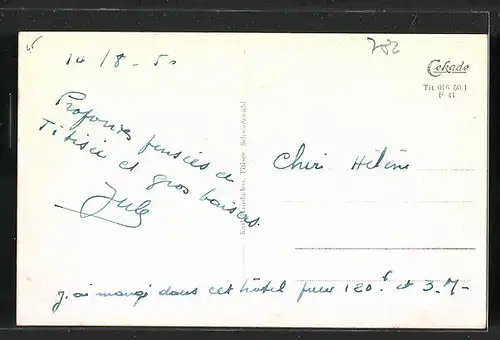 782
14/8-50
Cekade
Tit 016 50,1
F 41
Profondes pensées de
Titisée et gros baisers.
Jule
Cheri Hélène
j'ai mangé dans cet hôtel pour 120 f et 3.M-